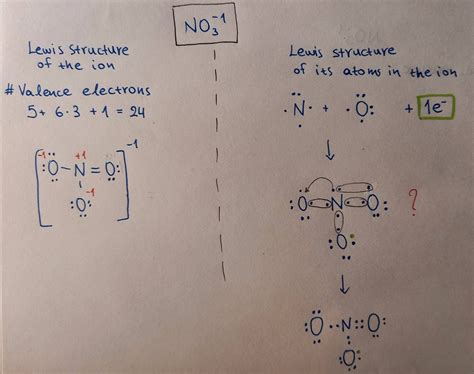 NO₃⁻¹
Lewis structure
of the ion
# Valence electrons
5 + 6·3 + 1 = 24
-1 +1 -1
[:Ö–N=Ö:]
-1
:Ö:
Lewis structure
of its atoms in the ion
·N· + ·Ö: + 1e⁻
:O N O: ?
:O:
:Ö··N::O:
:O: